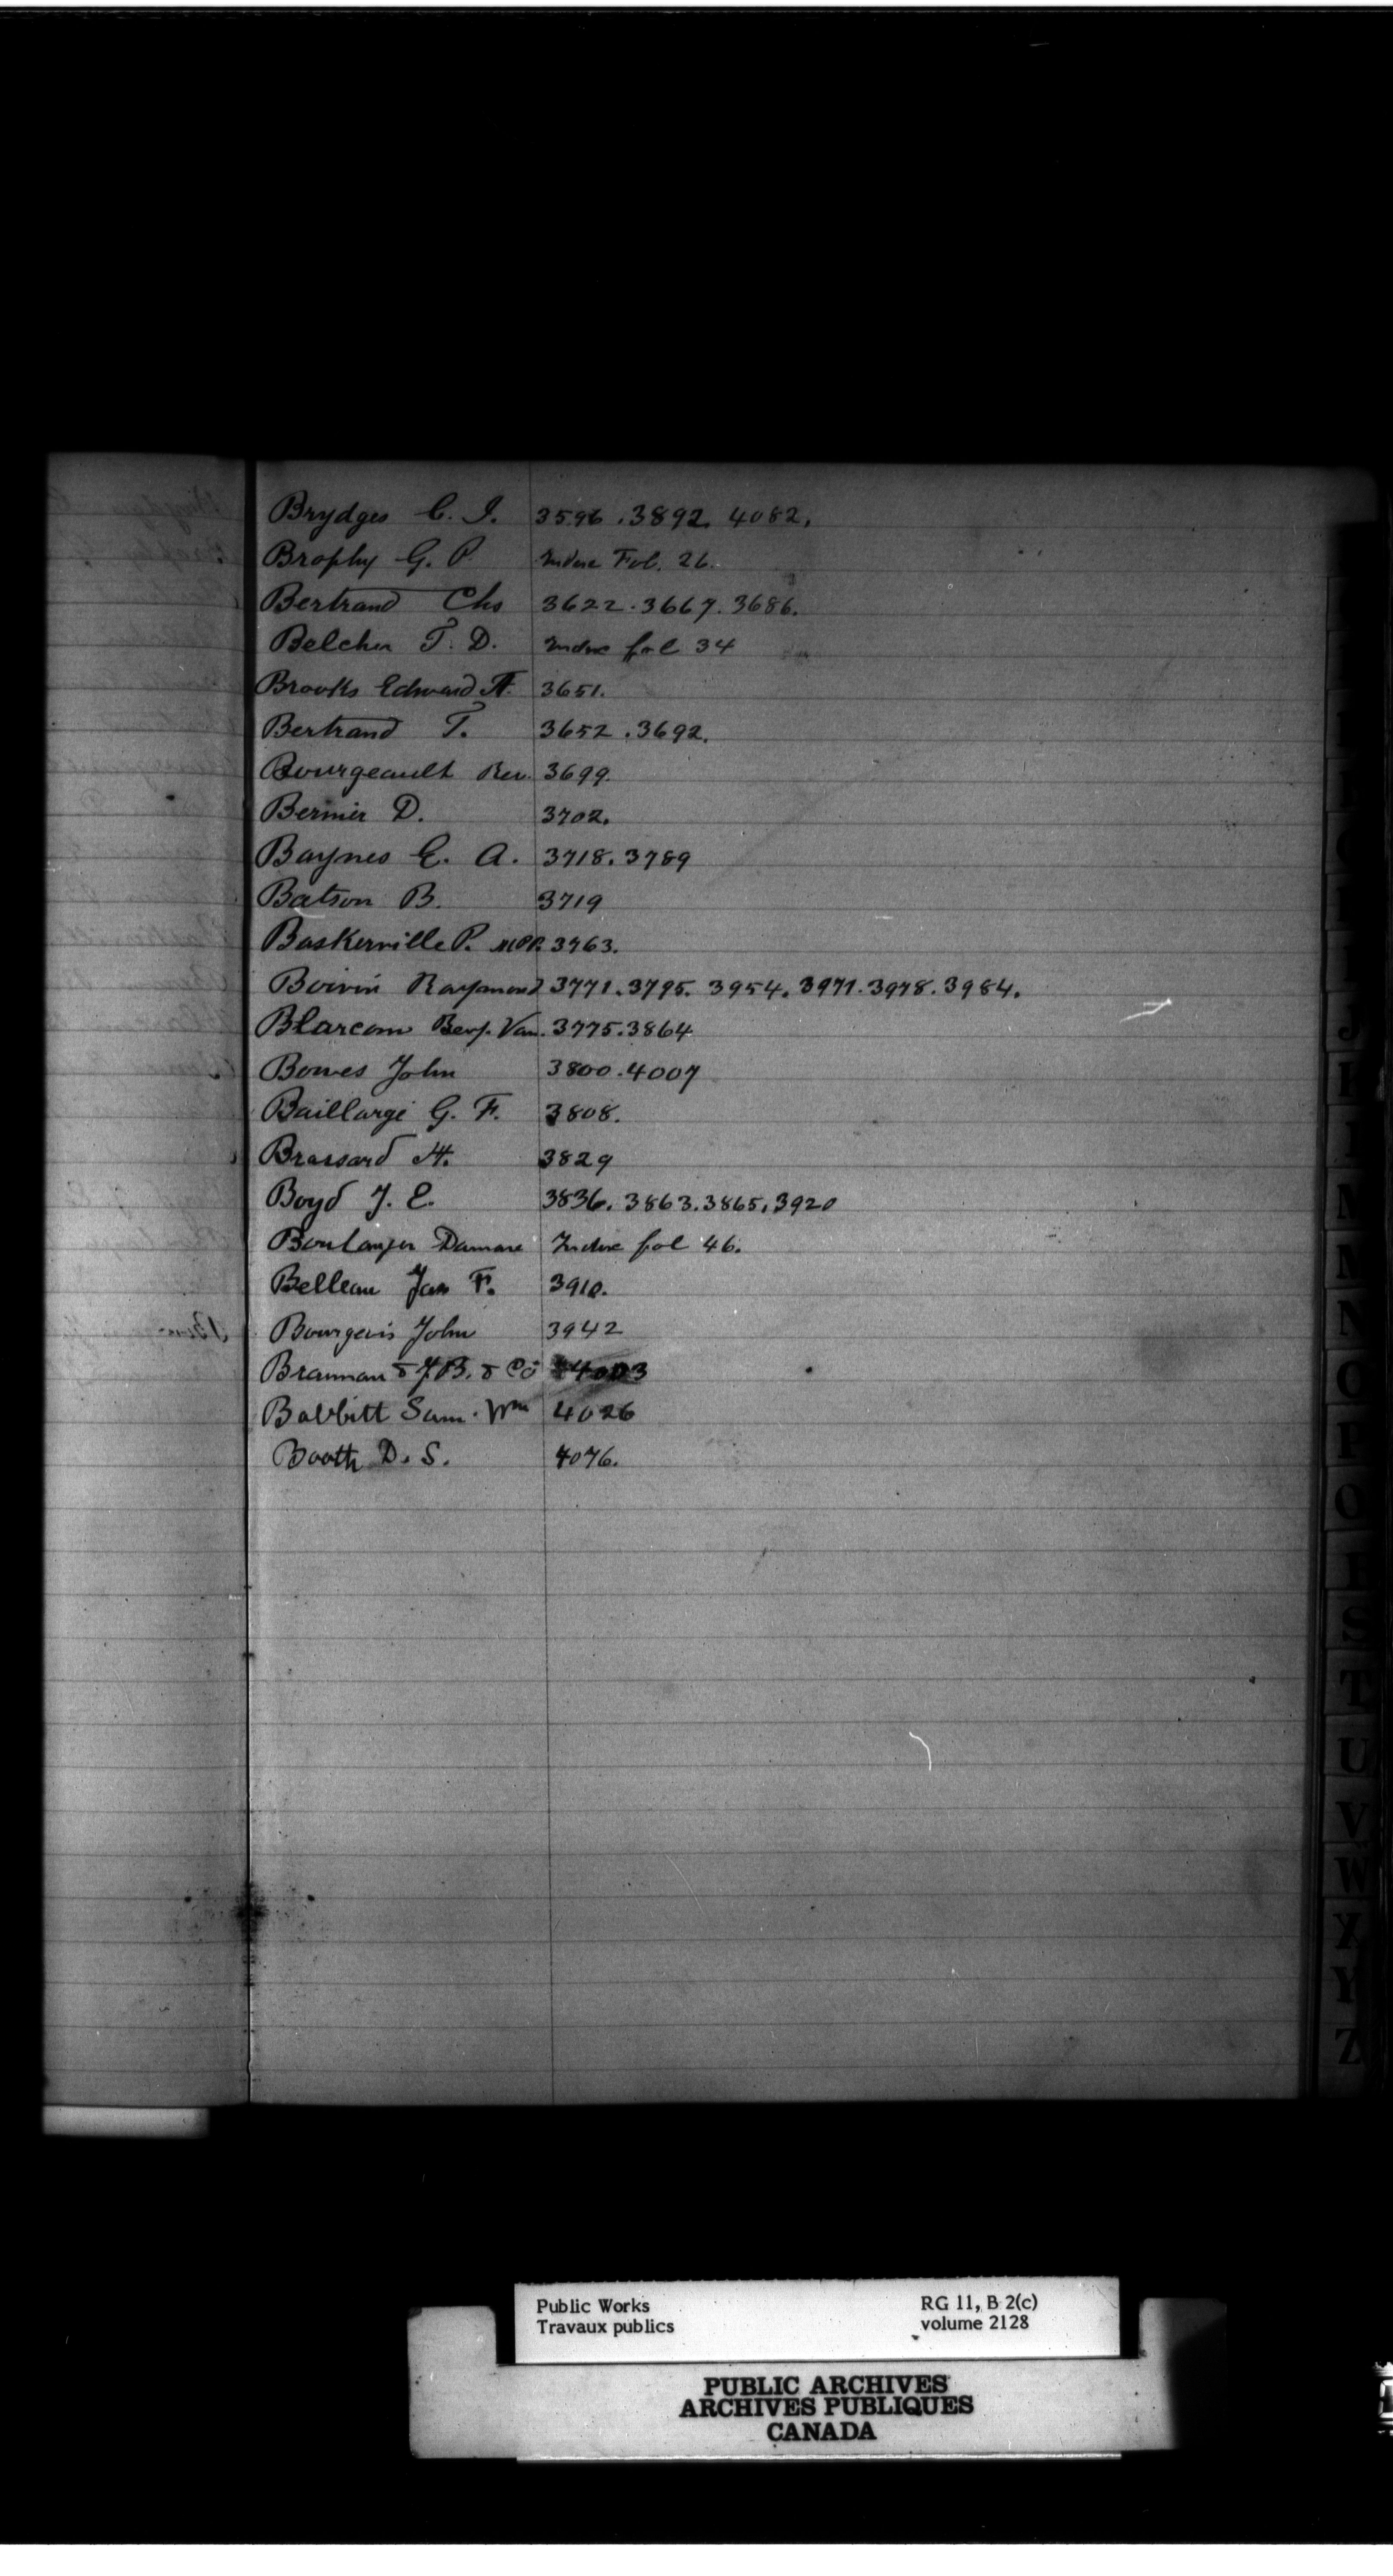 Brydges C. J. 3596. 3892. 4082.
Brophy G. P. Indue Fol. 26.
Bertrand Chs 3622. 3667. 3686.
Belcher T. D. Indue fol 34
Brooks Edward A. 3651.
Bertrand T. 3652. 3692.
Bourgeault Rev. 3699.
Bernier D. 3702.
Baynes E. A. 3718. 3789
Batson B. 3719
Baskerville P. MPP. 3763.
Boivin Raymond 3771. 3795. 3954. 3971. 3978. 3984.
Blarcom Benj. Van. 3775. 3864
Bowes John 3800. 4007
Baillargé G. F. 3808.
Brassard H. 3829
Boyd J. E. 3836. 3863. 3865. 3920
Boulanger Damase Indue fol 46.
Belleau Jas F. 3910.
Bourgeois John 3942
Brannan & J.B. & Co 4003
Babbitt Sam. Wm 4026
Booth D. S. 4076.
N
O
P
Q
R
S
T
U
V
W
X
Y
Z
Public Works RG 11, B 2(c)
Travaux publics volume 2128
PUBLIC ARCHIVES
ARCHIVES PUBLIQUES
CANADA